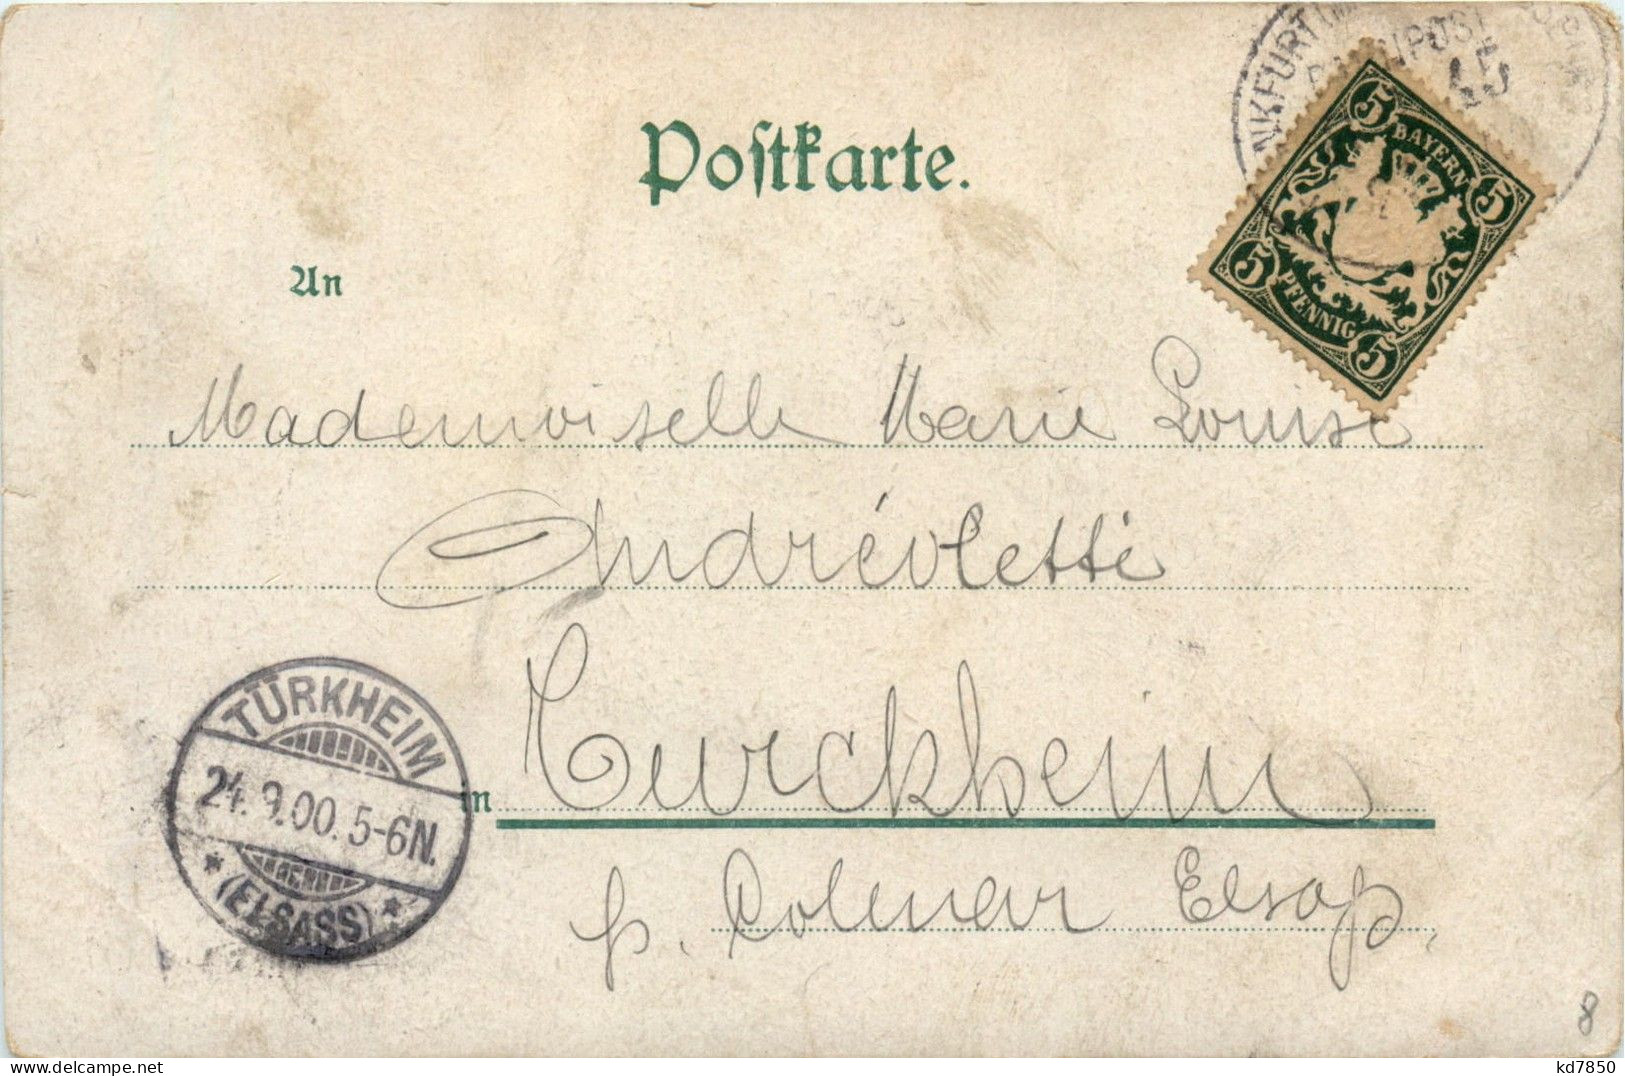 Postkarte.
BAHNPOST
5 BAYERN 5
5 PFENNIG 5
An
Mademoiselle Marie Louise
Andréoletti
TÜRKHEIM
24.9.00. 5-6N.
* (ELSASS) *
in Turckheim
p. Colmar Elsaß.
8
delcampe.net
kd7850